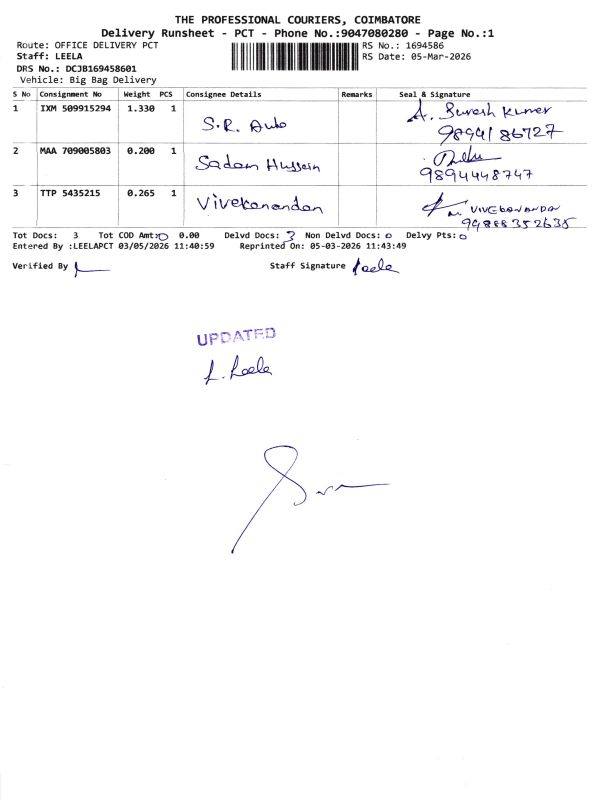 THE PROFESSIONAL COURIERS, COIMBATORE
Delivery Runsheet - PCT - Phone No.:9047080280 - Page No.:1
Route: OFFICE DELIVERY PCT RS No.: 1694586
Staff: LEELA RS Date: 05-Mar-2026
DRS No.: DCJB169458601
Vehicle: Big Bag Delivery
S No Consignment No Weight PCS Consignee Details Remarks Seal & Signature
1 IXM 509915294 1.330 1 S.R. Auto A. Suresh Kumar
98941 86727
2 MAA 709005803 0.200 1 Sadam Hussein
9894448747
3 TTP 5435215 0.265 1 Vivekanandan M. VIVEKANANDAN
Tot Docs: 3 Tot COD Amt: 0 0.00 Delvd Docs: 3 Non Delvd Docs: 0 Delvy Pts: 0
Entered By :LEELAPCT 03/05/2026 11:40:59 Reprinted On: 05-03-2026 11:43:49
Verified By Staff Signature Leela
UPDATED
L. Leela